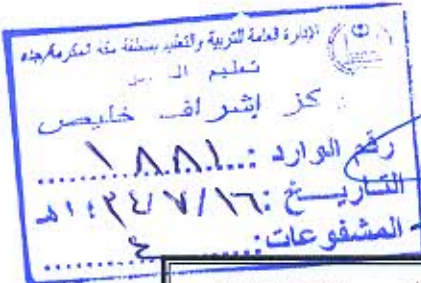 الإدارة العامة للتربية والتعليم بمنطقة مكة المكرمة بجدة
تعليم
كز إشراف خليص
رقم الوارد : ١٨٨١
التاريخ : ١٦/٧/١٤٣٤هـ
المشفوعات : ٤